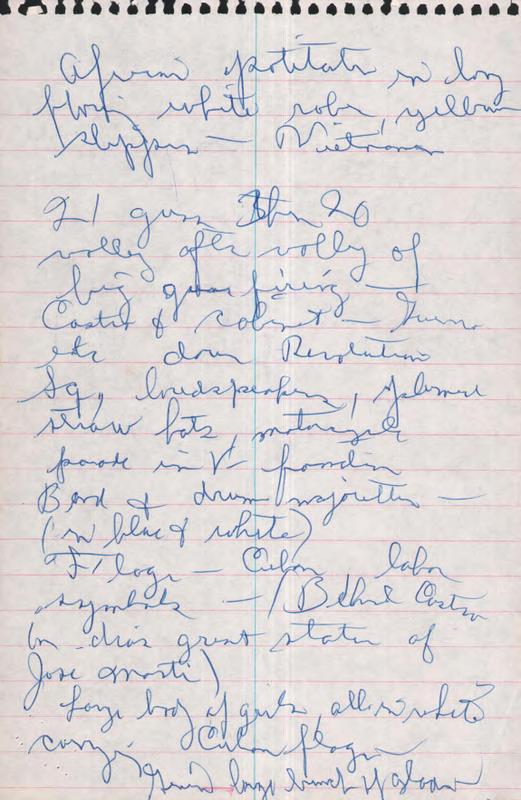 African potitate in long
flowing white robe, yellow
slippers — Vietnamese
21 guns then 20
volley after volley of
big guns firing —
Castro & cabinet —
etc down Revolution
Sq, loudspeakers,
straw hats, motorcycle
parade in V formation
Band & drum majorettes —
(in blue & white)
Flags — Cuban labor
symbols — (Behind Castro
great statue of
Jose Marti)
Large body of girls, all in white
carrying Cuban flags
large bunch of